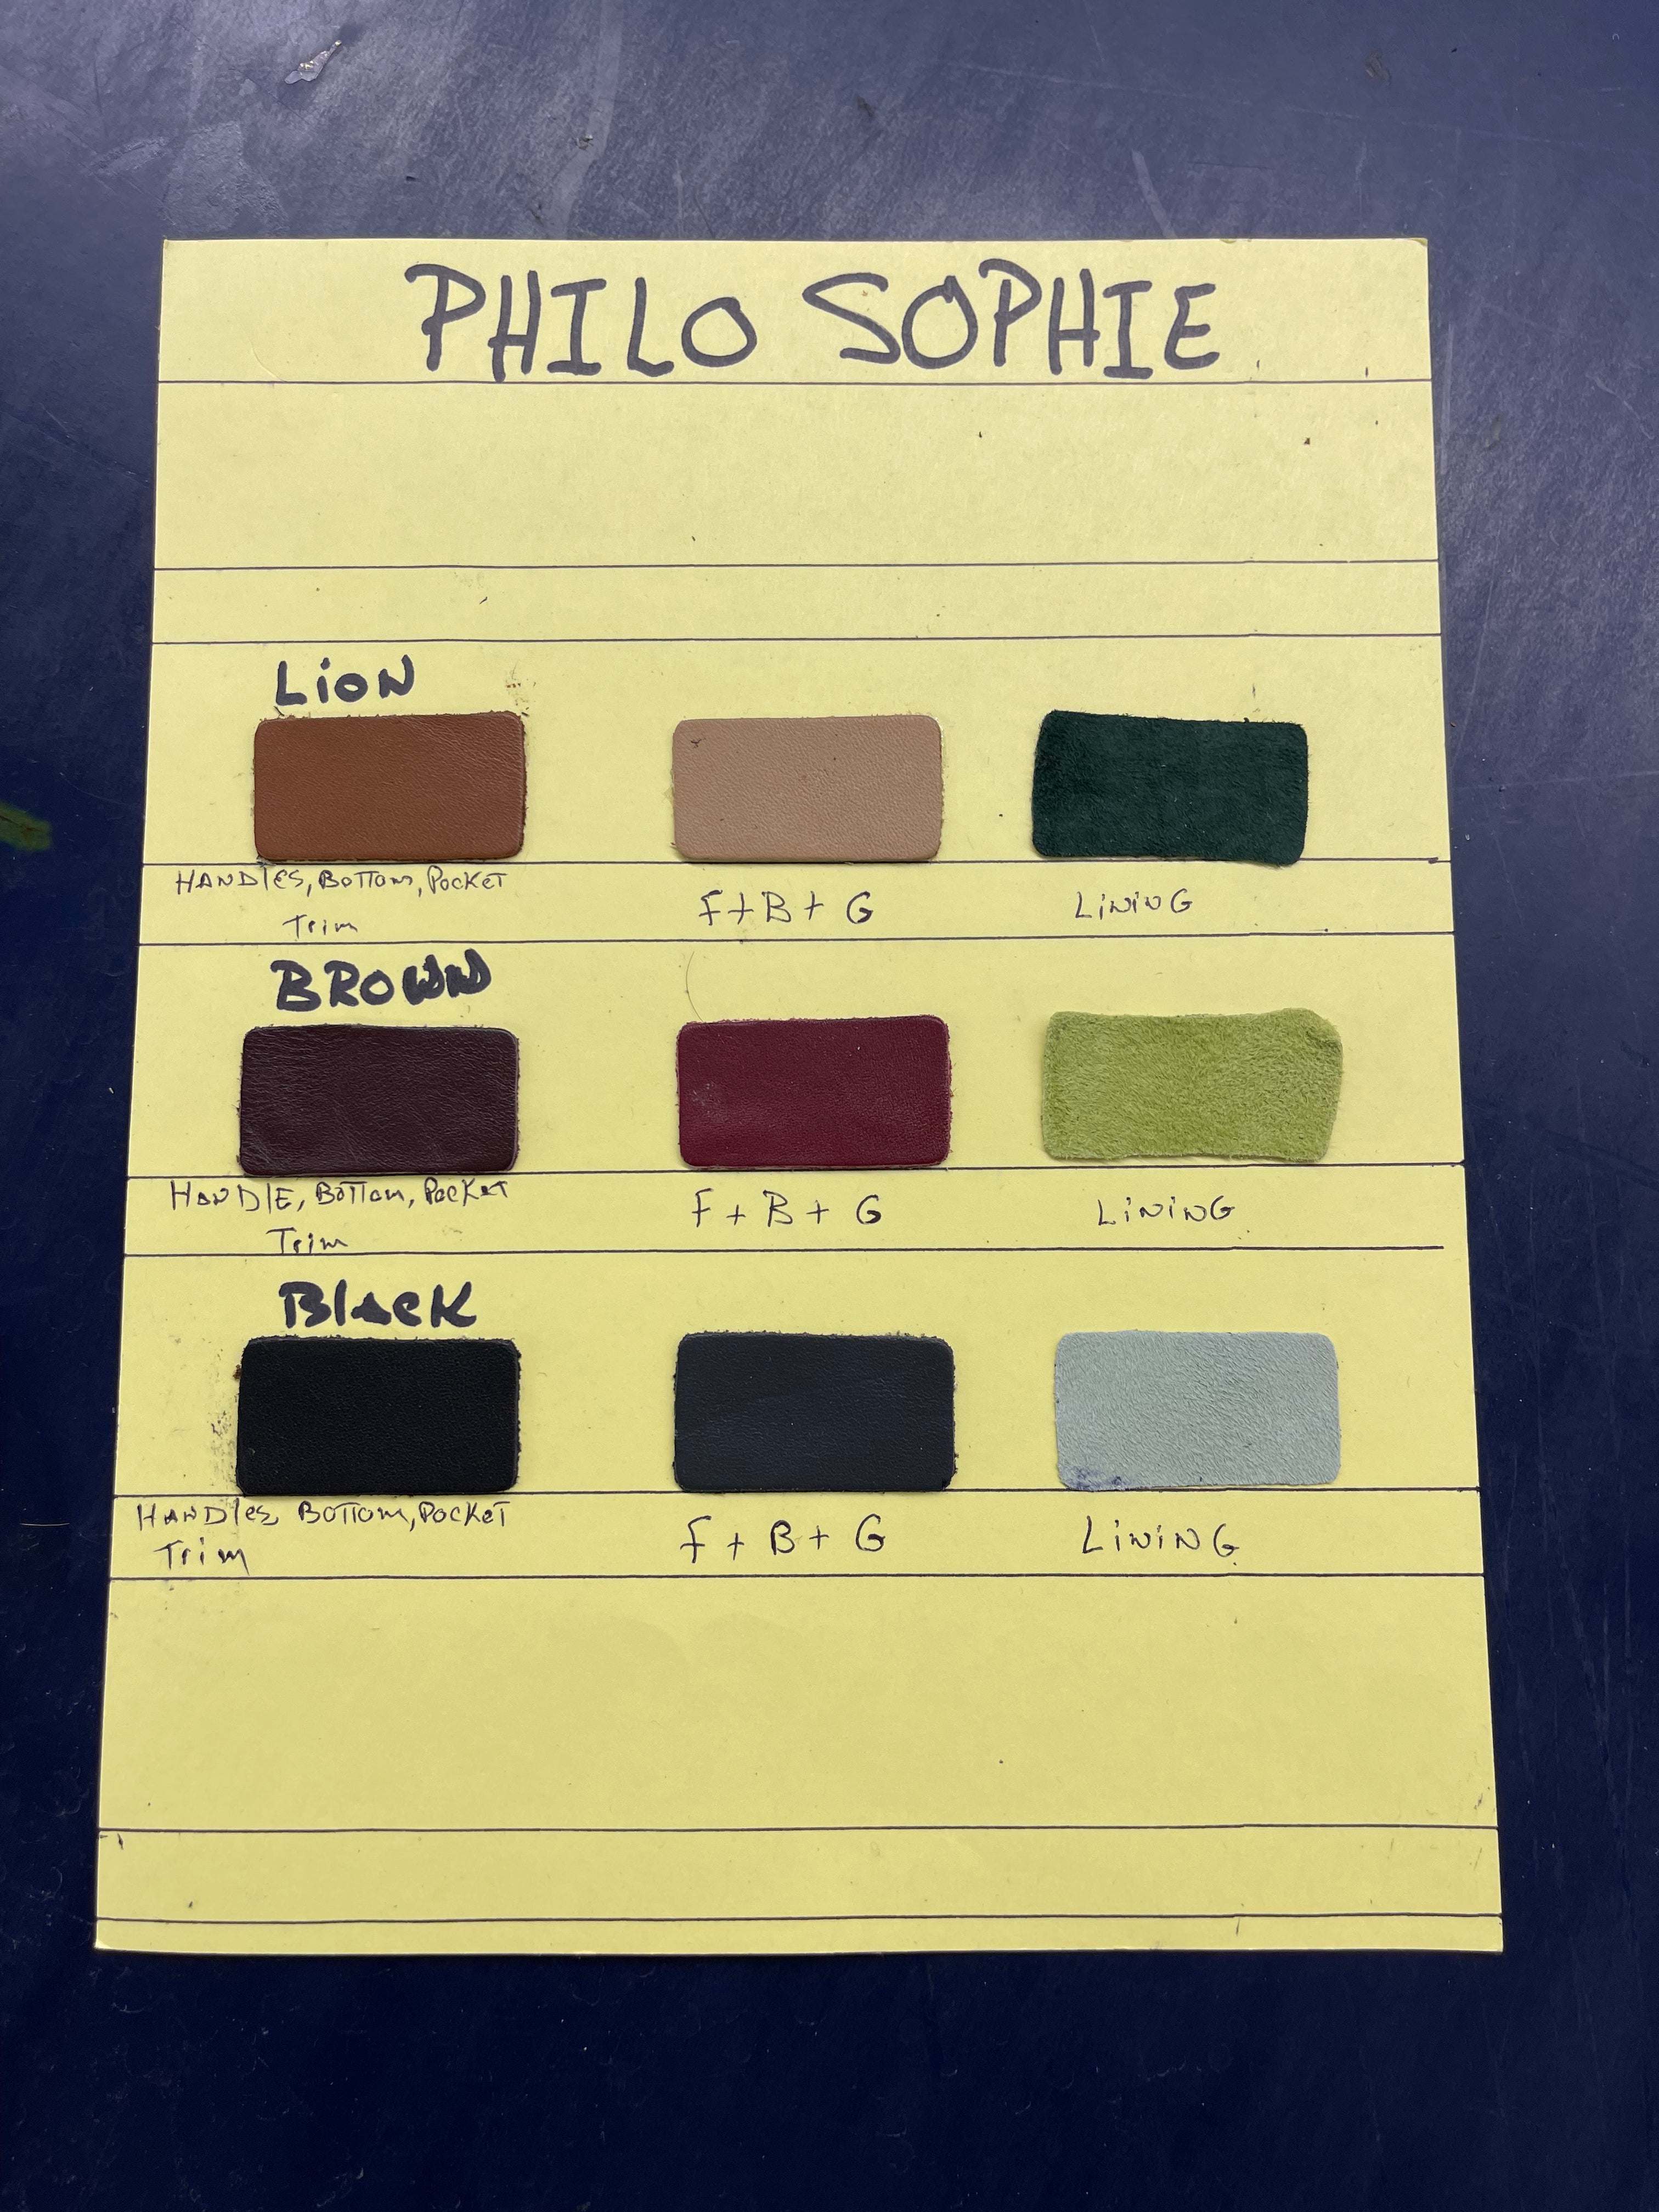 PHILO SOPHIE
LiON
HANDlES, BOTTOm, POCKET
Trim
F+B+G
LiNiNG
BROWN
HANDlE, BOTTOm, POCKET
Trim
F+B+G
LiNiNG
BlACK
HANDleS, BOTTOm, POCKET
Trim
F+B+G
LiNiNG